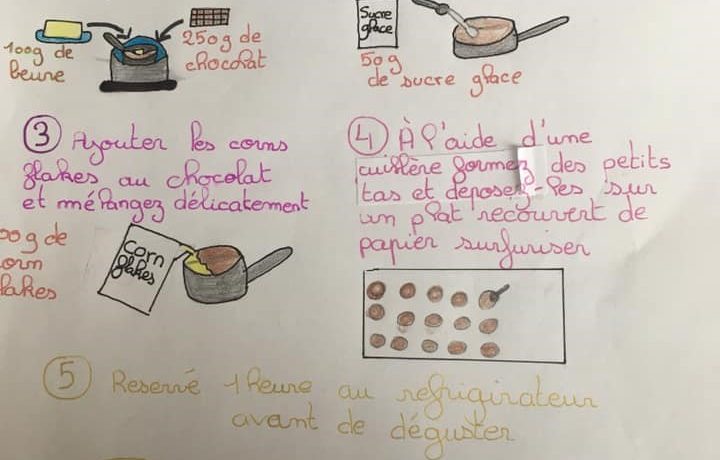 100g de
beurre
250g de
chocolat
Sucre
glace
50g
de sucre glace
③ Ajouter les corns
flakes au chocolat
et mélangez délicatement
00g de
corn
flakes
Corn
flakes
④ À l'aide d'une
cuillère formez des petits
tas et déposez-les sur
un plat recouvert de
papier surfuriser
⑤ Reservé 1 heure au refrigirateur
avant de déguster